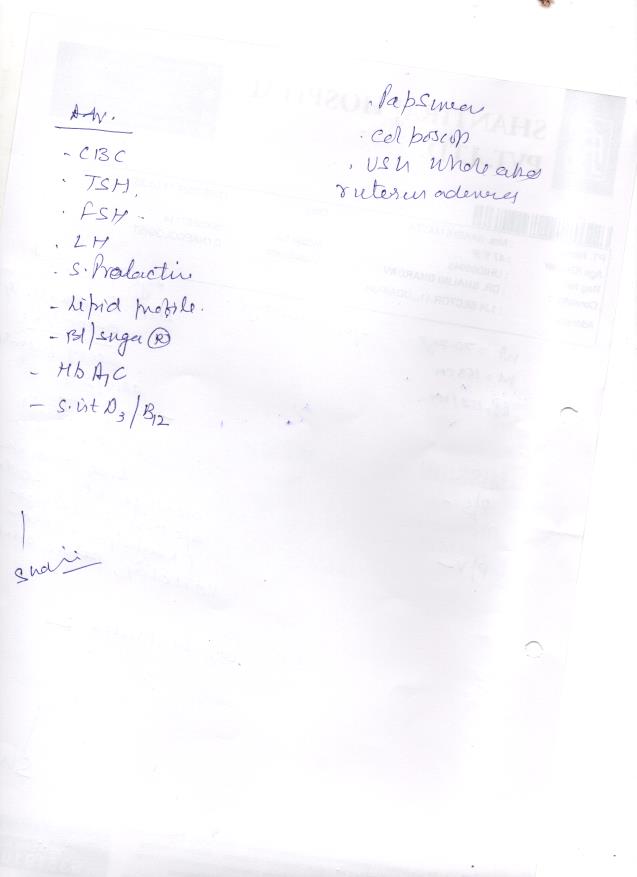 Adv.
- CBC
- TSH.
- FSH -
. LH
. S. Prolactin
- Lipid profile.
- Bl/sugar (R)
- HbA1C
- S. vit D3/B12
. Pap Smear
. Colposcop
. USG Whole abd
r uterus adenexes